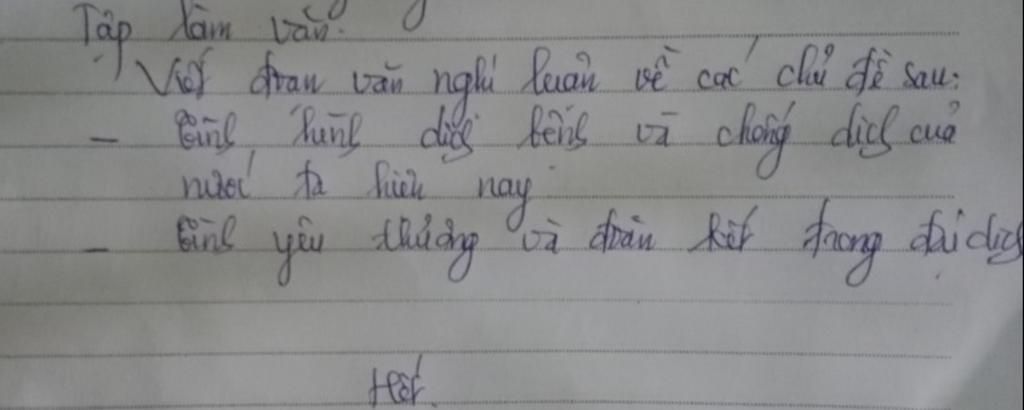 Tập làm văn.
Viết đoạn văn nghị luận về các chủ đề sau:
- tình hình dịch bệnh và chống dịch của
nước ta hiện nay
- tình yêu thương và đoàn kết trong đại dịch
Hết.